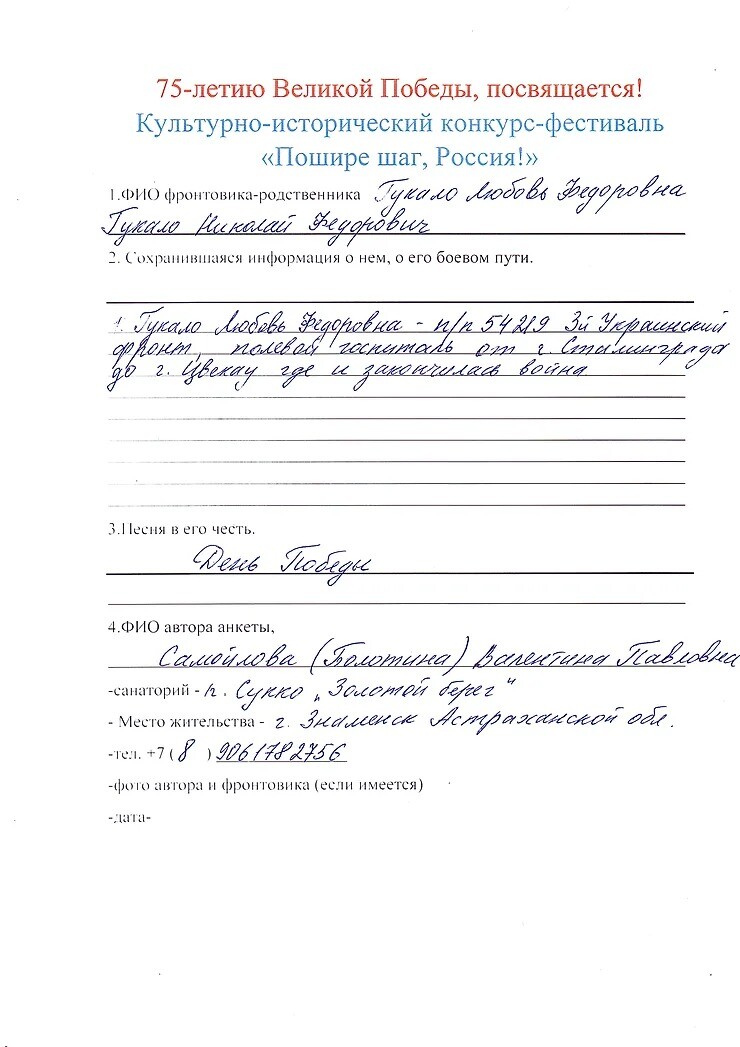 75-летию Великой Победы, посвящается!
Культурно-исторический конкурс-фестиваль
«Пошире шаг, Россия!»
1.ФИО фронтовика-родственника Гукало Любовь Федоровна
Гукало Николай Федорович
2. Сохранившаяся информация о нем, о его боевом пути.
1. Гукало Любовь Федоровна - п/п 54219 3й Украинский
фронт, полевой госпиталь от г. Сталинграда
до г. Цвекау где и закончилась война
3.Песня в его честь.
День Победы
4.ФИО автора анкеты,
Самойлова (Болотина) Валентина Павловна
-санаторий - п. Сукко „Золотой берег"
- Место жительства - г. Знаменск Астраханской обл.
-тел. +7 ( 8 ) 9061782756
-фото автора и фронтовика (если имеется)
-дата-